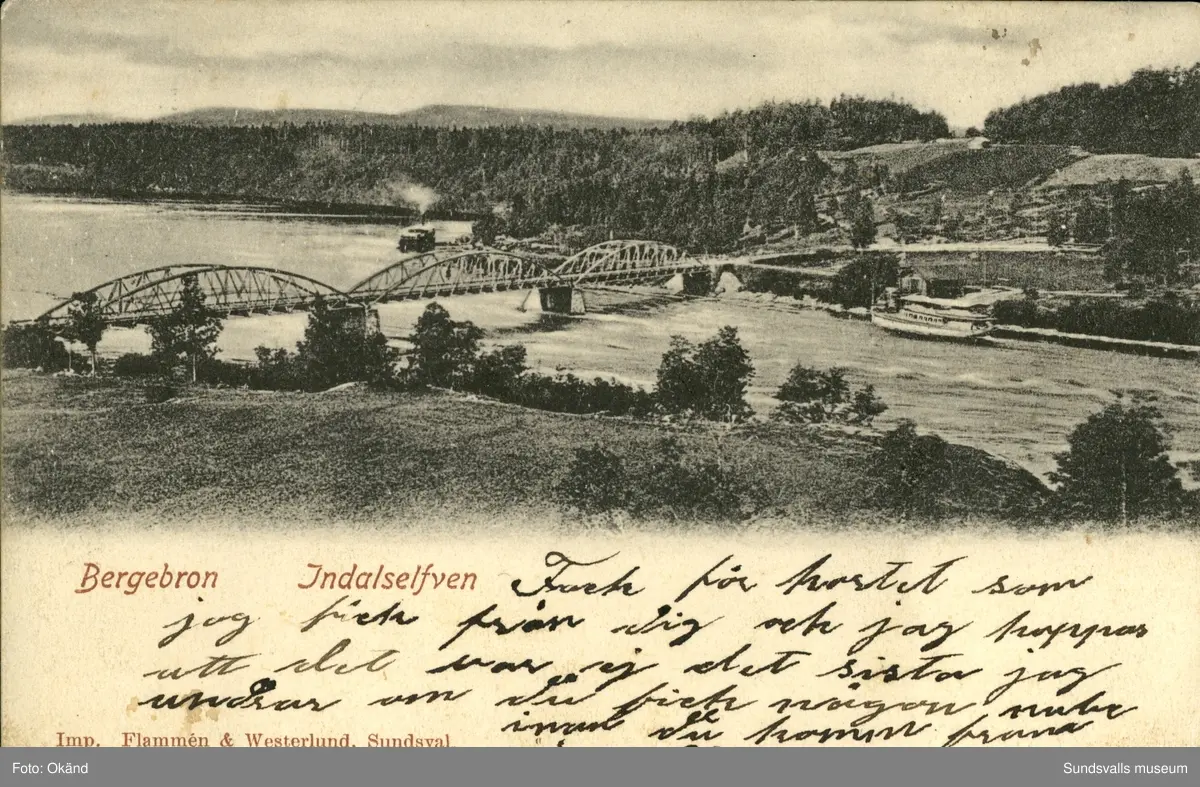 Bergebron Indalselfven Tack för kortet som
jog fick från dig och jag hoppas
att det var ej det sista jag
undrar om du fick någon
innan du komm
Imp. Flammén & Westerlund, Sundsval
Foto: Okänd
Sundsvalls museum